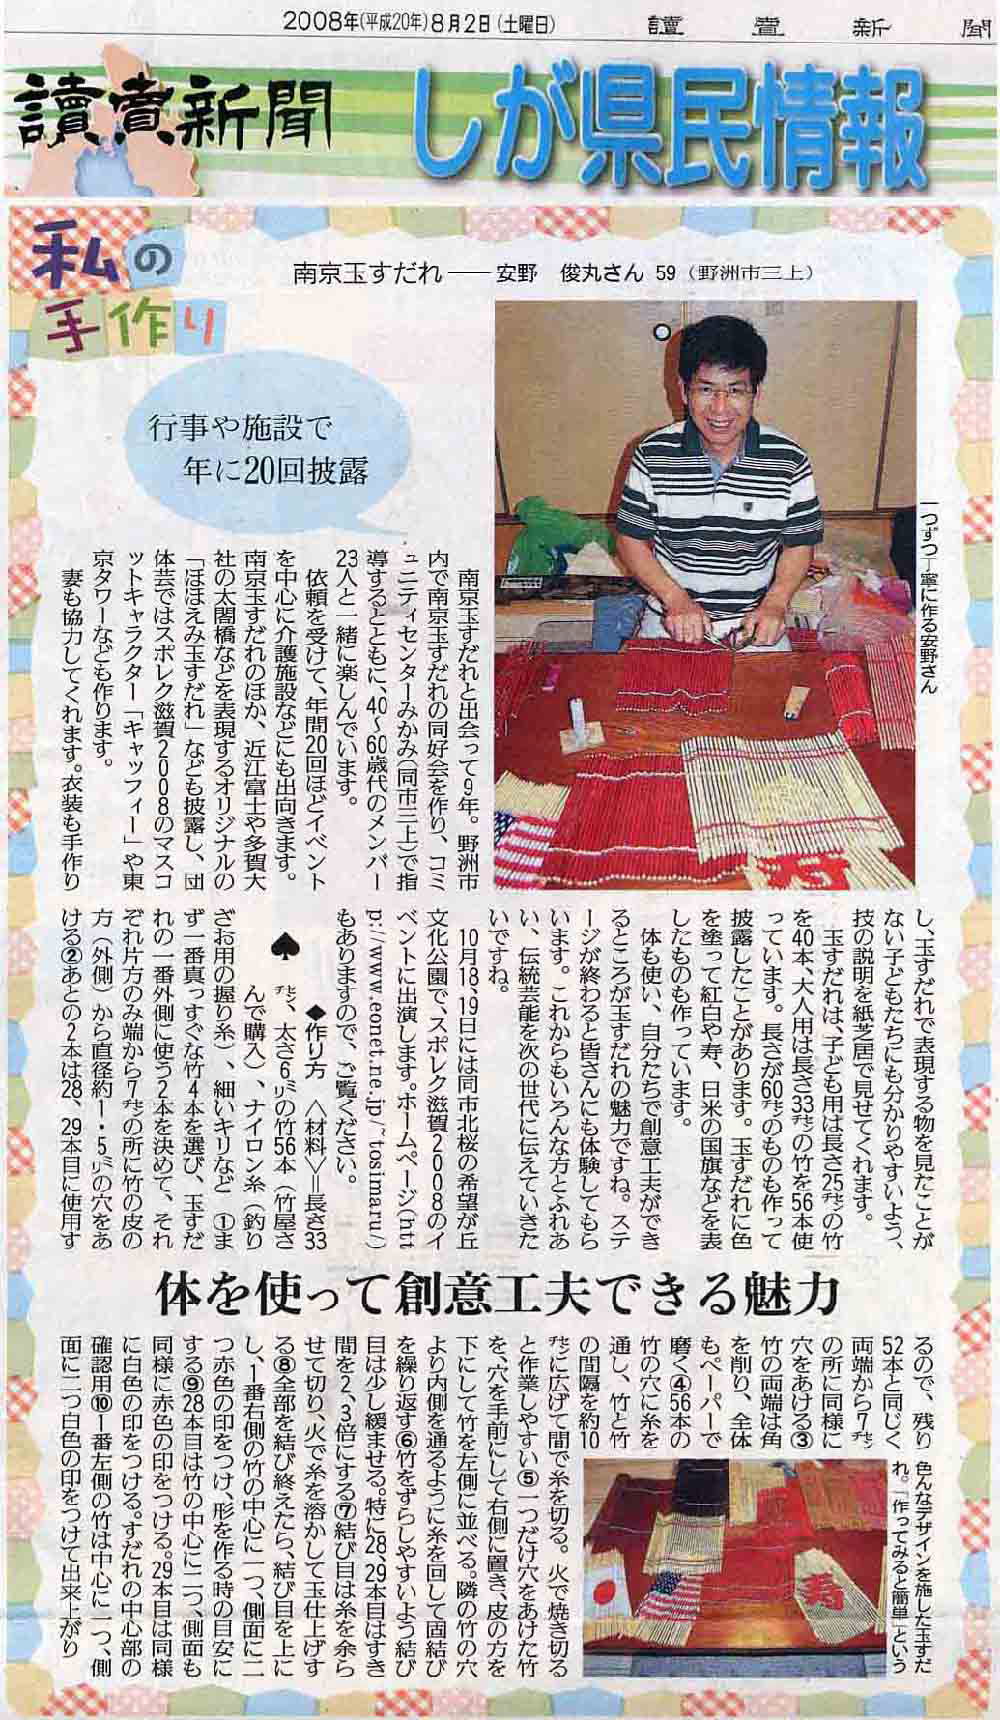 2008年(平成20年)8月2日(土曜日)
讀賣新聞
讀賣新聞
しが県民情報
私の
手作り
南京玉すだれ——安野 俊丸さん 59(野洲市三上)
行事や施設で
年に20回披露
一つずつ丁寧に作る安野さん
南京玉すだれと出会って9年。野洲市
内で南京玉すだれの同好会を作り、コミ
ュニティセンターみかみ(同市三上)で指
導するとともに、40〜60歳代のメンバー
23人と一緒に楽しんでいます。
依頼を受けて、年間20回ほどイベント
を中心に介護施設などにも出向きます。
南京玉すだれのほか、近江富士や多賀大
社の太閤橋などを表現するオリジナルの
「ほほえみ玉すだれ」なども披露し、団
体芸ではスポレク滋賀2008のマスコ
ットキャラクター「キャッフィー」や東
京タワーなども作ります。
妻も協力してくれます。衣装も手作り
し、玉すだれで表現する物を見たことが
ない子どもたちにも分かりやすいよう、
技の説明を紙芝居で見せてくれます。
玉すだれは、子ども用は長さ25㌢の竹
を40本、大人用は長さ33㌢の竹を56本使
っています。長さが60㌢のものも作って
披露したことがあります。玉すだれに色
を塗って紅白や寿、日米の国旗などを表
したものも作っています。
体も使い、自分たちで創意工夫ができ
るところが玉すだれの魅力ですね。ステ
ージが終わると皆さんにも体験してもら
います。これからもいろんな方とふれあ
い、伝統芸能を次の世代に伝えていきた
いですね。
10月18、19日には同市北桜の希望が丘
文化公園で、スポレク滋賀2008のイ
ベントに出演します。ホームページ(htt
p://www.eonet.ne.jp/~tosimaru/)
もありますので、ご覧ください。
♠
◆作り方 〈材料〉=長さ33
㌢、太さ6㍉の竹56本(竹屋さ
んで購入)、ナイロン糸(釣り
ざお用の握り糸)、細いキリなど ①ま
ず一番真っすぐな竹4本を選び、玉すだ
れの一番外側に使う2本を決めて、それ
ぞれ片方のみ端から7㌢の所に竹の皮の
方(外側)から直径約1・5㍉の穴をあ
ける②あとの2本は28、29本目に使用す
体を使って創意工夫できる魅力
るので、残り
52本と同じく
両端から7㌢
の所に同様に
穴をあける③
竹の両端は角
を削り、全体
もペーパーで
磨く④56本の
竹の穴に糸を
通し、竹と竹
の間隔を約10
㌢に広げて間で糸を切る。火で焼き切る
と作業しやすい⑤一つだけ穴をあけた竹
を、穴を手前にして右側に置き、皮の方を
下にして竹を左側に並べる。隣の竹の穴
より内側を通るように糸を回して固結び
を繰り返す⑥竹をずらしやすいよう結び
目は少し緩ませる。特に28、29本目はすき
間を2、3倍にする⑦結び目は糸を余ら
せて切り、火で糸を溶かして玉仕上げす
る⑧全部を結び終えたら、結び目を上に
し、1番右側の竹の中心に一つ、側面に二
つ赤色の印をつけ、形を作る時の目安に
する⑨28本目は竹の中心に二つ、側面も
同様に赤色の印をつける。29本目は同様
に白色の印をつける。すだれの中心部の
確認用⑩1番左側の竹は中心に一つ、側
面に二つ白色の印をつけて出来上がり
色んなデザインを施した玉すだ
れ。「作ってみると簡単」という
寿